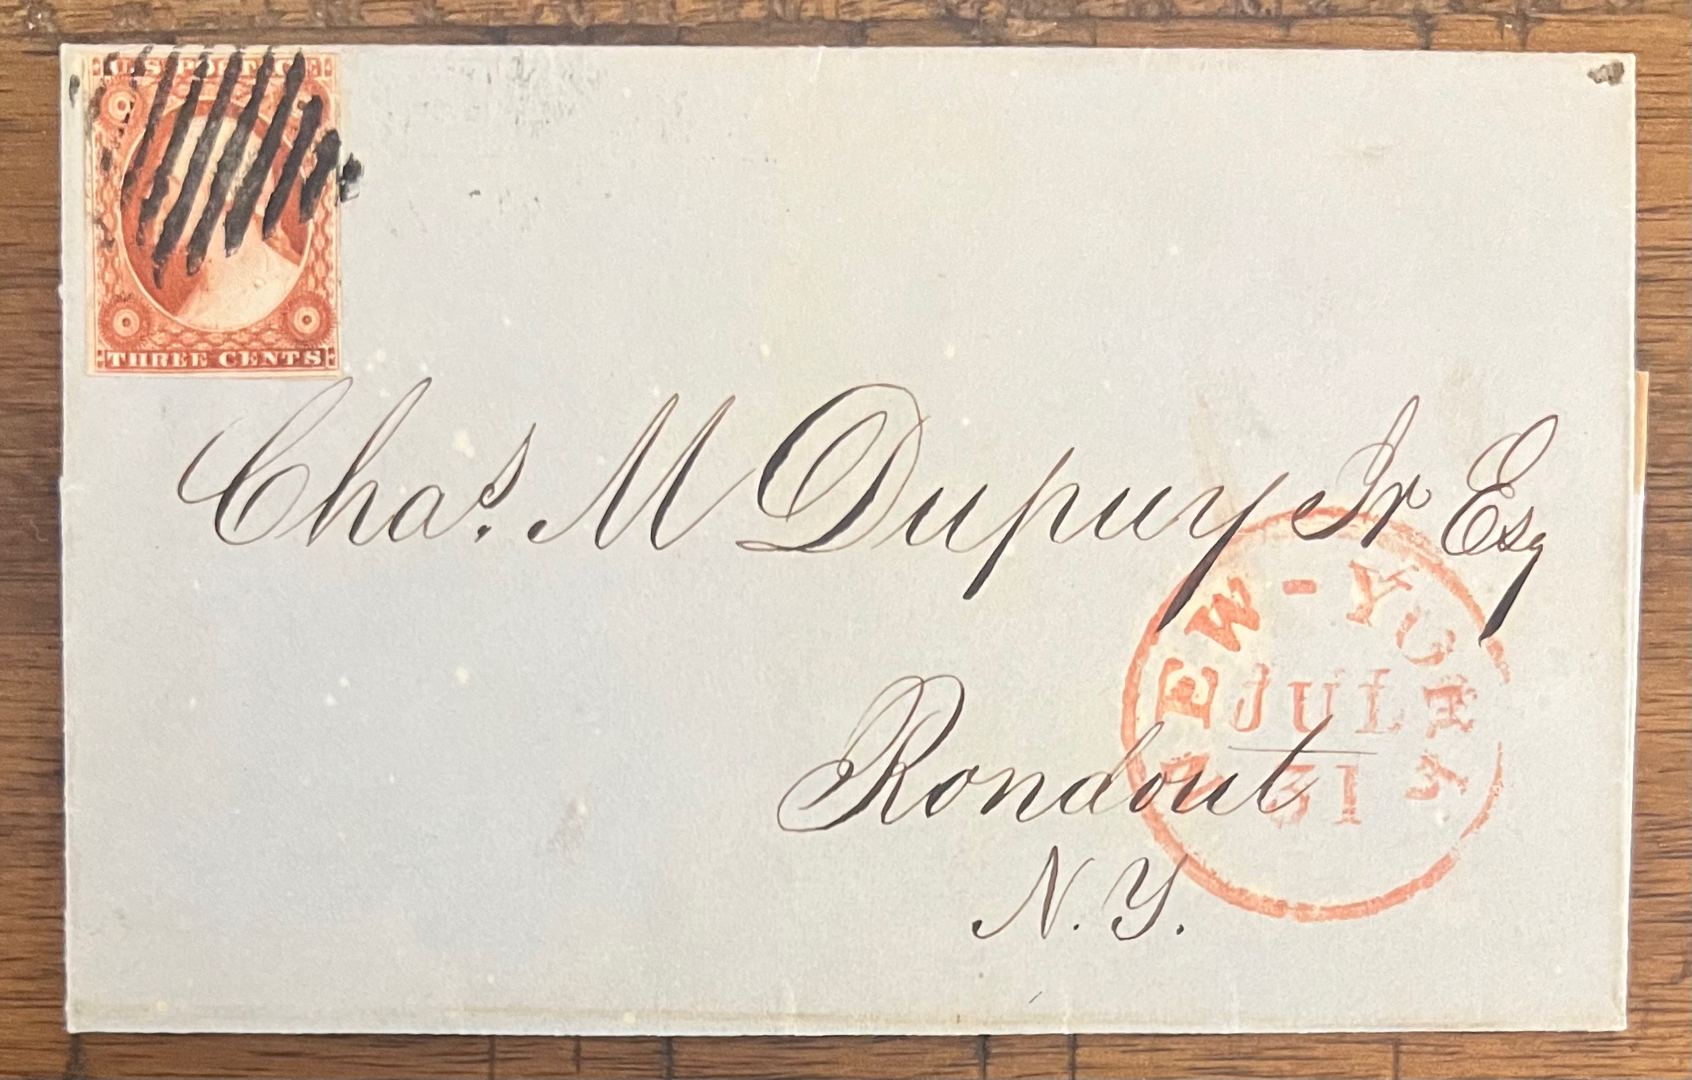 U.S. POSTAGE
THREE CENTS
Chas. M Dupuy Jr Esq
NEW-YORK
JUL
31
Rondout
N.Y.